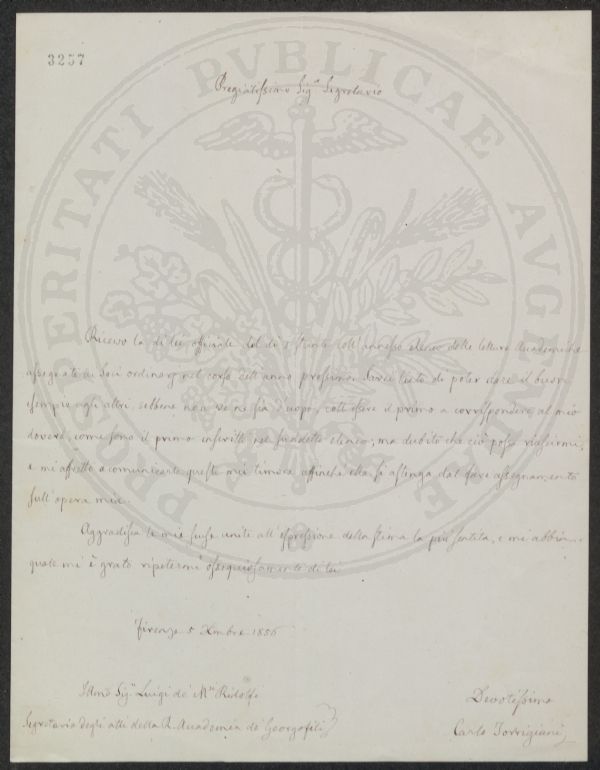 3257
PROSPERITATI PVBLICAE AVGENDAE
Pregiatissimo Sig.re Segretario
Ricevo la di lei officiale del dì 2 stante coll'annesso elenco delle letture Accademiche
assegnate ai Soci ordinarj nel corso dell'anno prossimo. Sarei lieto di poter dare il buon
esempio agli altri, sebbene non ve ne sia d'uopo, coll'essere il primo a corrispondere al mio
dovere, come sono il primo inscritto nel suddetto elenco; ma dubito che ciò possa riuscirmi,
e mi affretto a comunicarle questo mio timore affinché ella si astenga dal fare assegnamento
sull'opera mia.
Aggradisca le mie scuse unite all'espressione della stima la più sentita, e mi abbia
quale mi è grato ripetermi ossequiosamente di lei
Firenze 5 Xmbre 1856
Illmo Sig.re Luigi de' M.si Ridolfi
Segretario degli atti della R. Accademia de' Georgofili
Devotissimo
Carlo Torrigiani